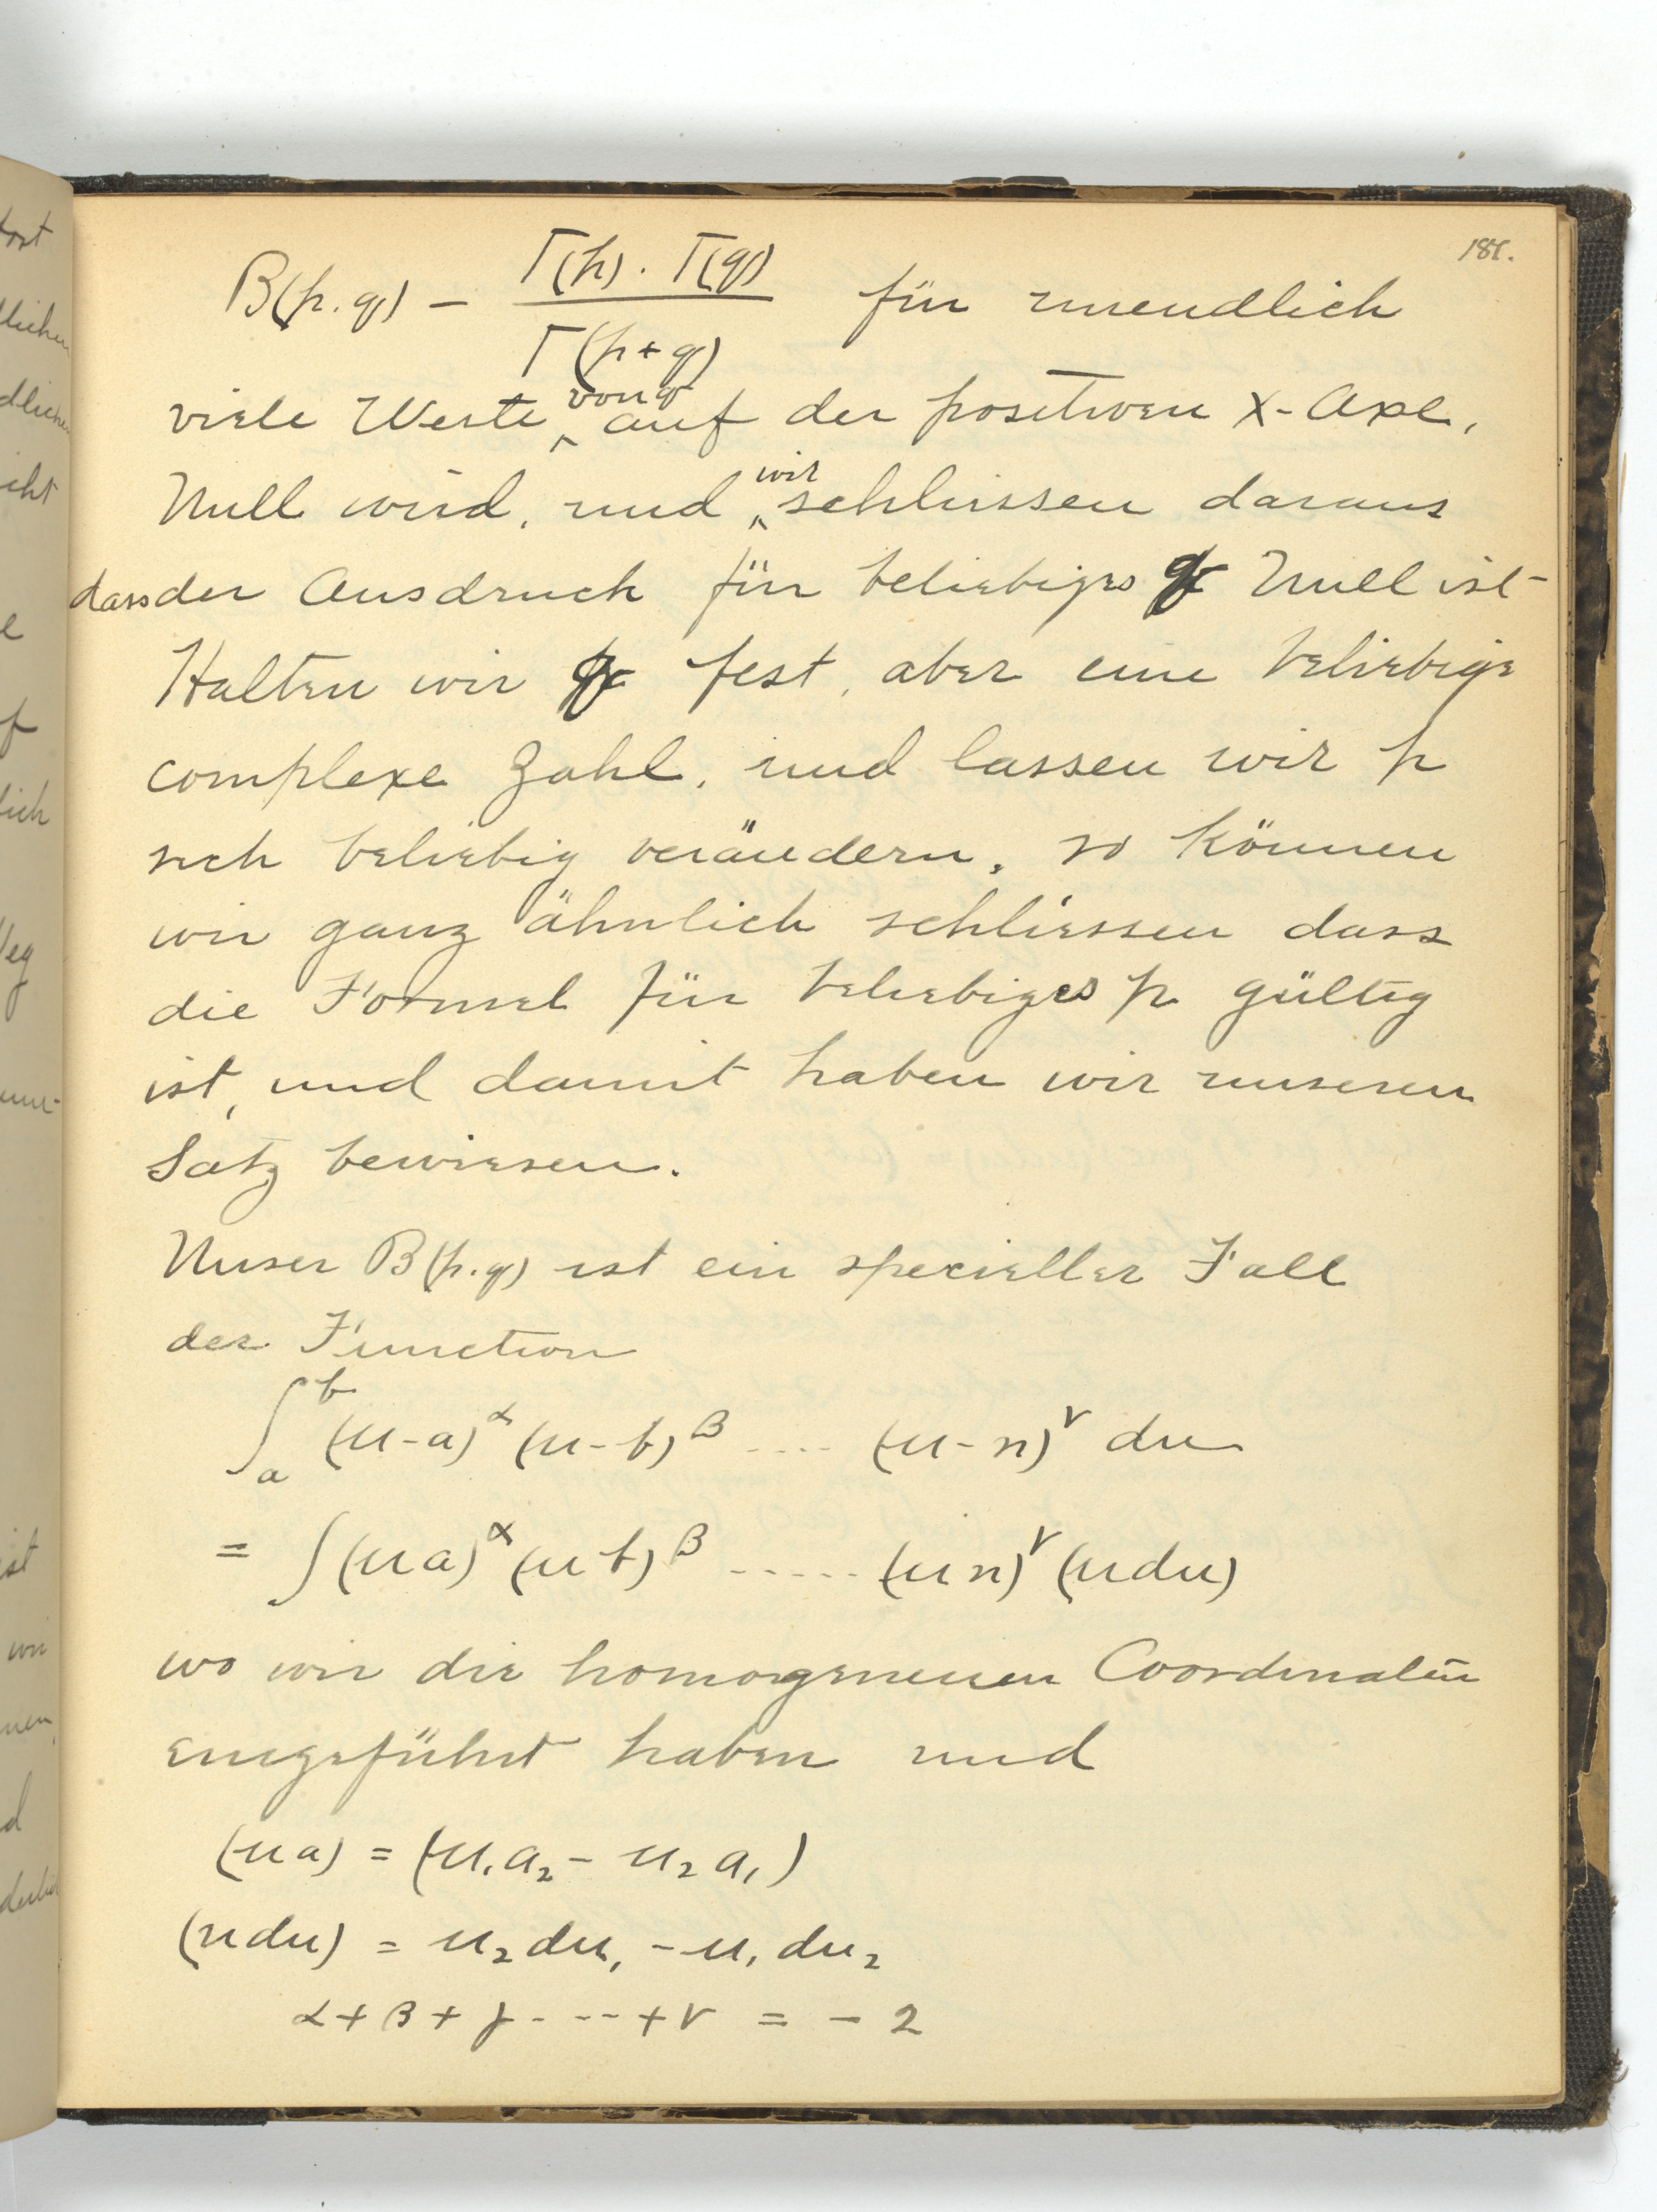 181.
B(p.q) – Γ(p) . Γ(q) / Γ(p+q) für unendlich
viele Werte von q auf der positiven X-Axe,
Null wird, und wir schliessen daraus
dass der Ausdruck für beliebiges q Null ist
Halten wir q fest, aber eine beliebige
complexe Zahl, und lassen wir p
sich beliebig verändern, so können
wir ganz ähnlich schliessen dass
die Formel für beliebiges p gültig
ist, und damit haben wir unseren
Satz bewiesen.
Unser B(p.q) ist ein specieller Fall
der Function
∫ₐᵇ (u-a)^α (u-b)^β .... (u-n)^ν du
= ∫(ua)^α (ub)^β ..... (un)^ν (udu)
wo wir die homogenenen Coordinaten
eingeführt haben und
(ua) = (u₁a₂ - u₂a₁)
(udu) = u₂du₁ - u₁du₂
α+β+γ- --+ν = - 2